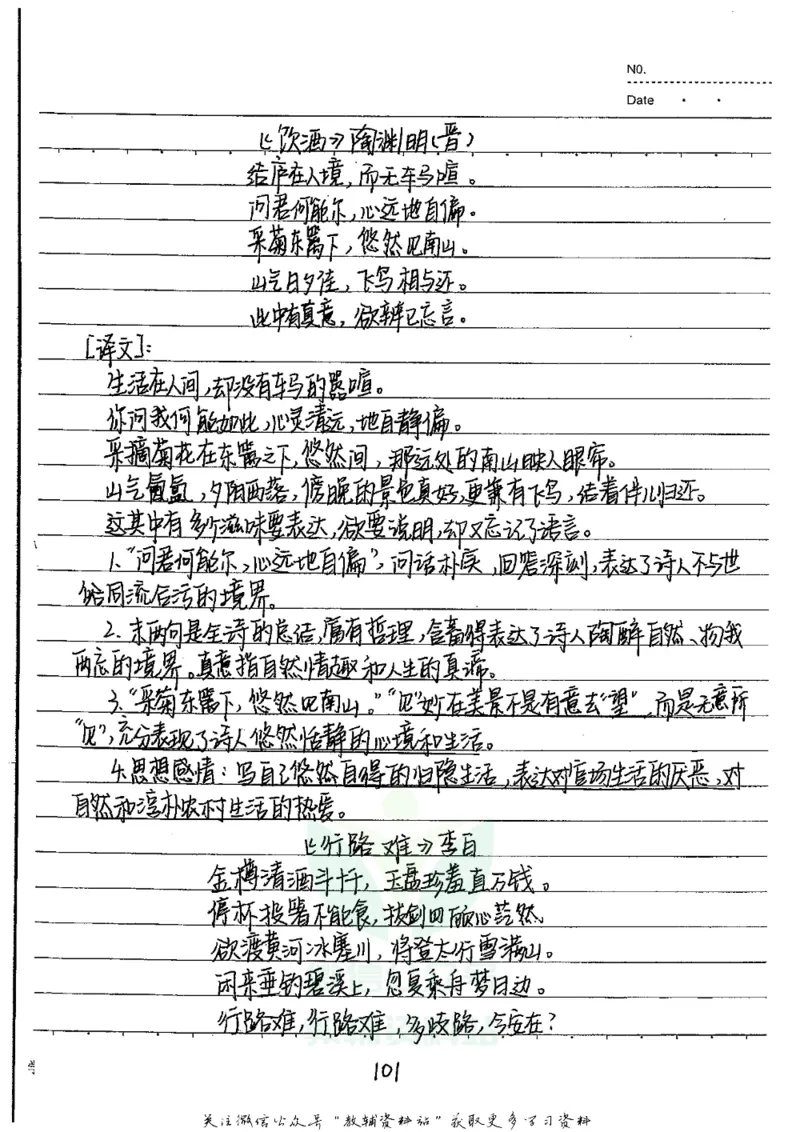 NO.
Date
《饮酒》陶渊明(晋)
结庐在人境,而无车马喧。
问君何能尔,心远地自偏。
采菊东篱下,悠然见南山。
山气日夕佳,飞鸟相与还。
此中有真意,欲辨已忘言。
[译文]:
生活在人间,却没有车马的嚣喧。
你问我何能如此,心灵清远,地自静偏。
采摘菊花在东篱之下,悠然间,那远处的南山映入眼帘。
山气氤氲,夕阳西落,傍晚的景色真好,更兼有飞鸟,结着伴儿归还。
这其中有多少滋味要表达,欲要说明,却又忘记了语言。
1.“问君何能尔,心远地自偏”,问话朴实,回答深刻,表达了诗人不与世
俗同流合污的境界。
2. 末两句是全诗的总结,富有哲理,含蓄得表达了诗人陶醉自然、物我
两忘的境界。真意指自然情趣和人生的真谛。
3.“采菊东篱下,悠然见南山。”“见”妙在美景不是有意去“望”,而是无意所
“见”,充分表现了诗人悠然恬静的心境和生活。
4.思想感情:写自己悠然自得的归隐生活,表达对官场生活的厌恶,对
自然和淳朴农村生活的热爱。
《行路难》李白
金樽清酒斗十千,玉盘珍羞直万钱。
停杯投箸不能食,拔剑四顾心茫然。
欲渡黄河冰塞川,将登太行雪满山。
闲来垂钓碧溪上,忽复乘舟梦日边。
行路难,行路难,多歧路,今安在?
101
关注微信公众号“教辅资料站”获取更多学习资料